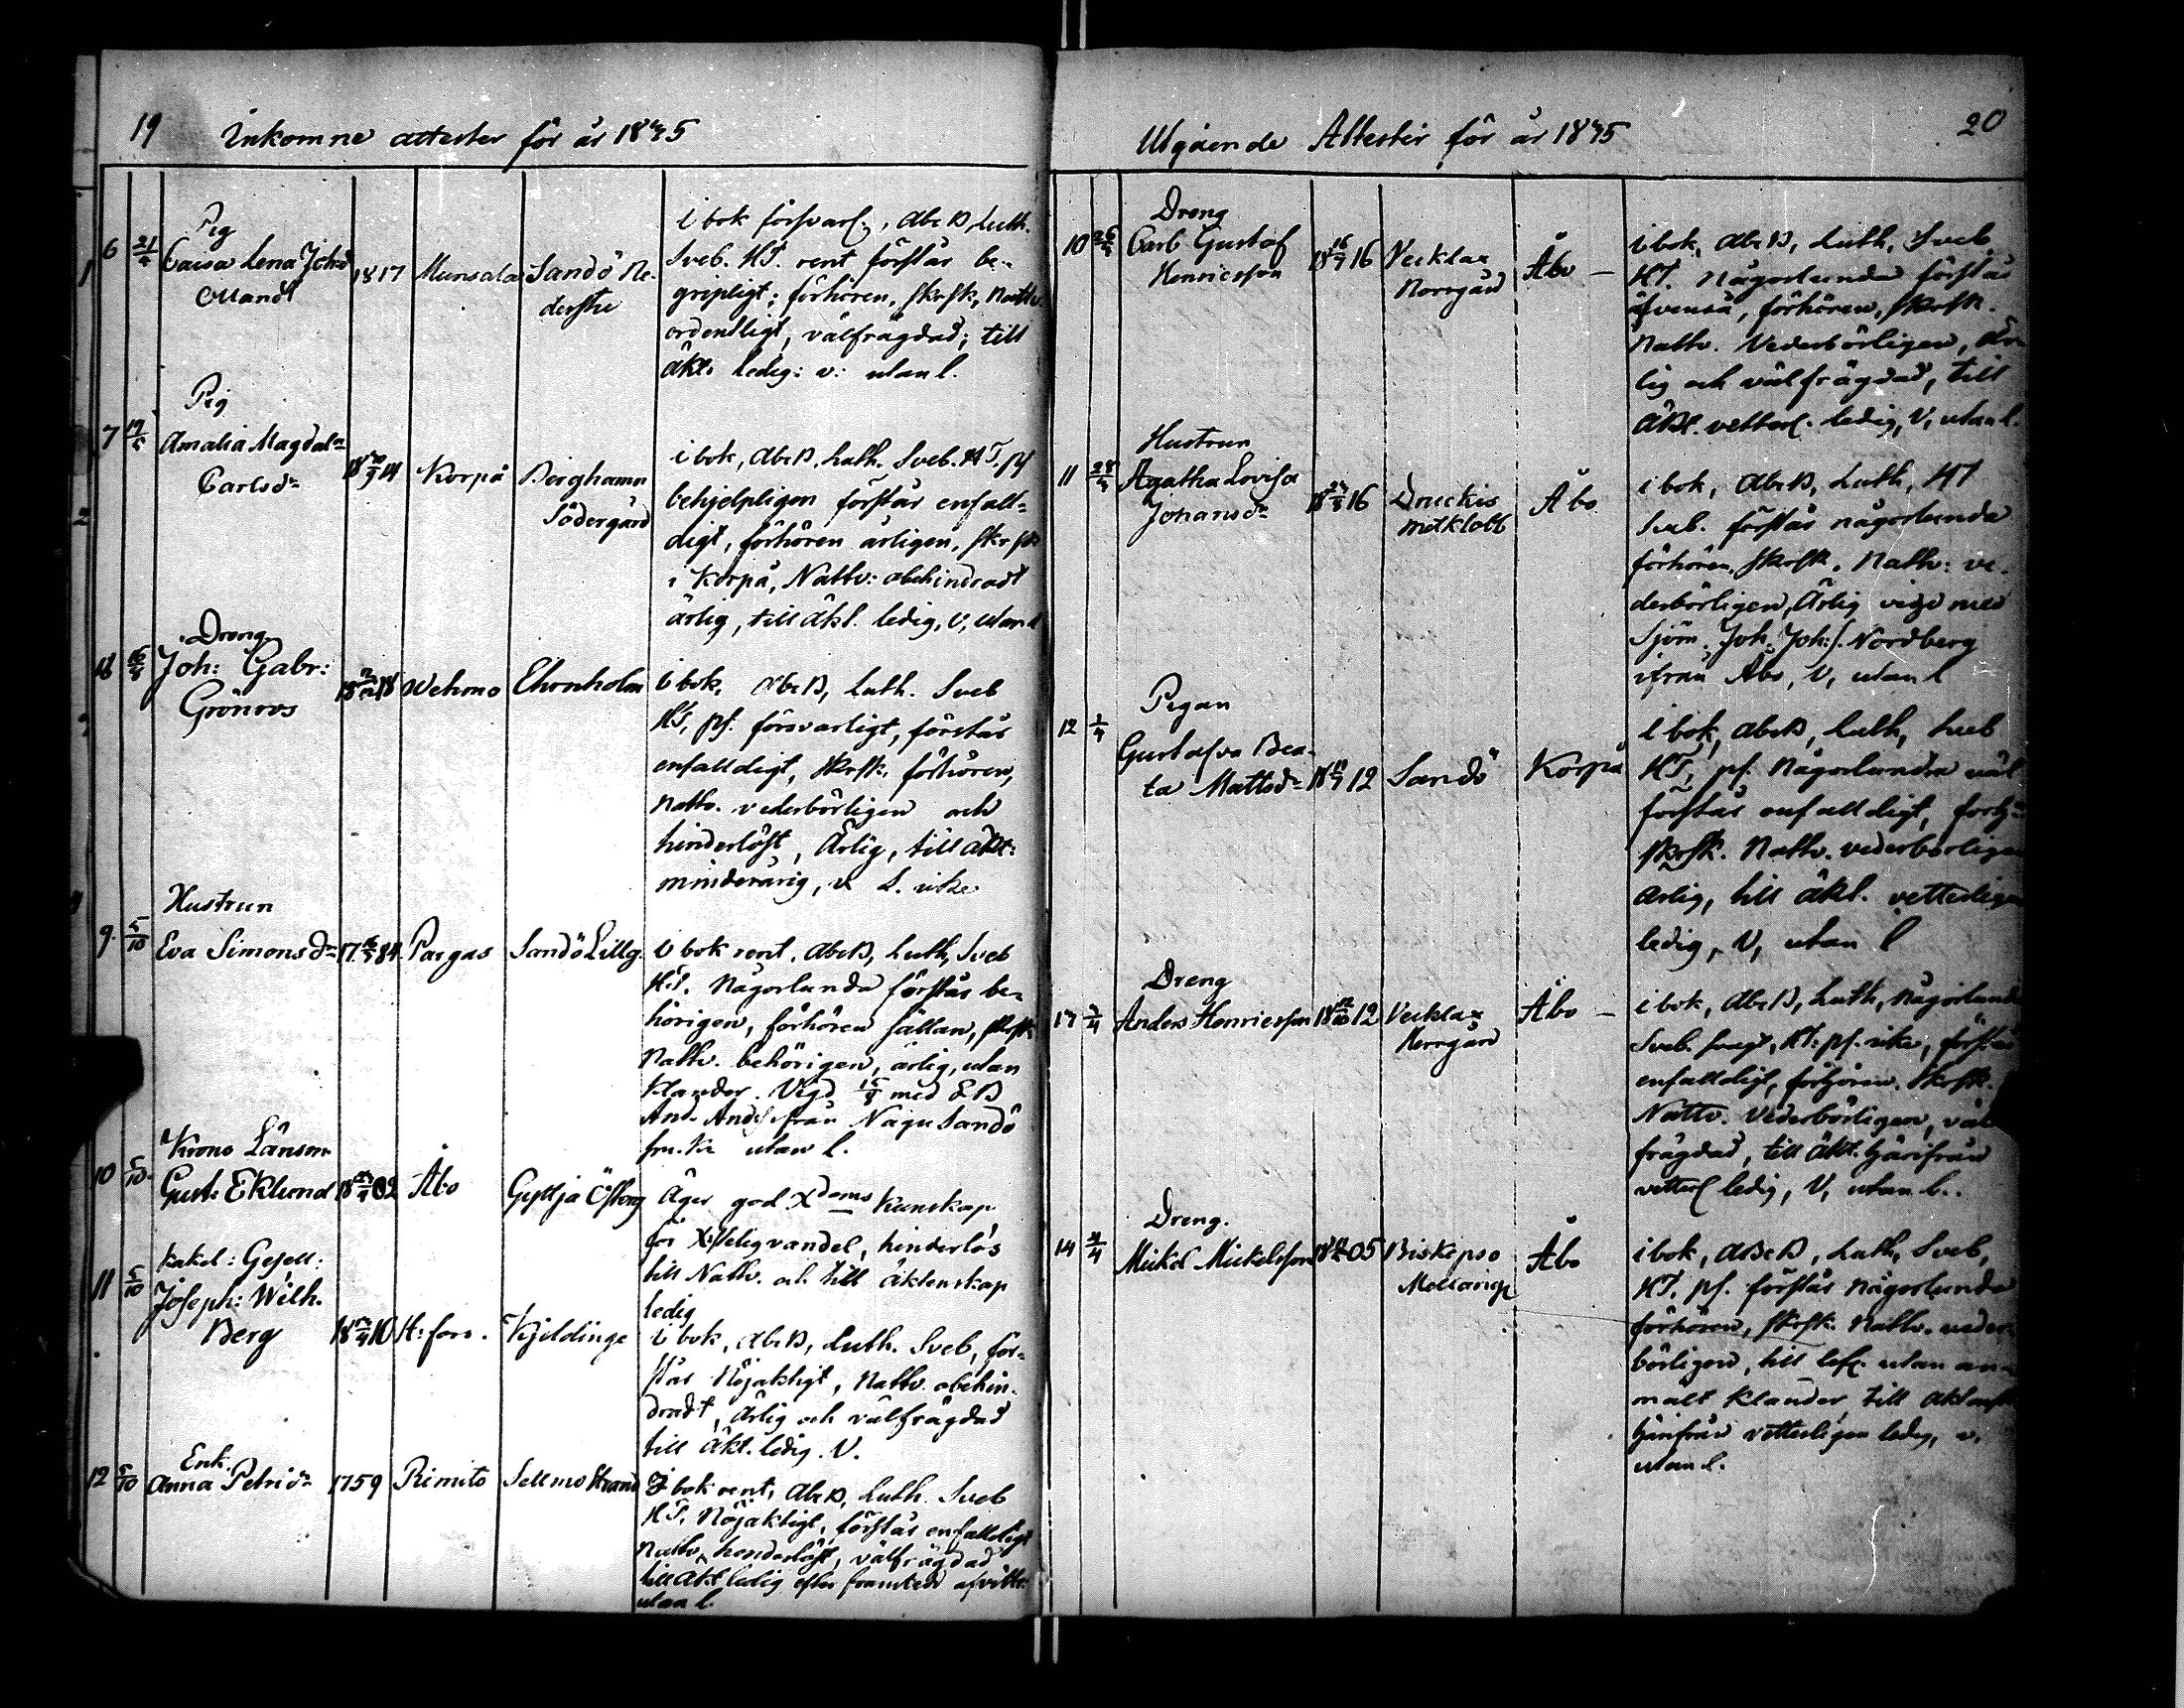 19 Inkomne attester för år 1845
6 21/4 Pig
Caisa Lena Johsdr
1817 Munsala Sandö Ne-
derste
i bok försvarl., AbcB, Luth.
Sveb. HT. rent förstår be-
gripligt; förhören, skrsk, Nattv
ordentligt, välfrägdad; till
äkt. ledig: v: utan l.
7 Pig
Amalia Magdal.
Carlsdr
Korpå Berghamn
Södergård
i bok, AbcB, Luth. Sveb. HT, pf
behjelpligen förstår enfall-
digt, förhören årligen, skrsk
i Korpå, Nattv: obehindradt
ärlig, till äkt. ledig, V, utan l
Dreng
Joh: Gabr:
Grönroos
Wehmo Ehronholm
i bok, AbcB, Luth. Sveb
HT, pf. försvarligt, förstår
enfalldigt, skrsk, förhören,
Nattv. vederbörligen och
hinderlöst, Ärlig, till äkt:
minderårig, v. L. icke
9. 5/10 Hustrun
Eva Simonsdr 84. Pargas Sandö Lillg.
i bok rent, AbcB, Luth, Sveb
HT. Någorlunda förstår be-
hörigen, förhören sällan, skrsk
Nattv. behörigen, ärlig, utan
klander. Vigd med EB
And. Andss. från Nagu Sandö
utan l.
10 5/10. Krono Länsm.
Gust: Eklund 02 Åbo Gyttja Österg
Äger god Xdoms Kunskap
för Xstelig vandel, hinderlös
till Nattv. och till Äktenskap
ledig
11 5/10 Kakel: Gesell:
Joseph: Wilh.
Berg 10 H:fors. Kjeldinge
i bok, AbcB, Luth. Sveb, för-
står Nöjaktigt, Nattv. obehin-
dradt, Ärlig och välfrägdad
till äkt. ledig. V.
12 5/10 Enk.
Anna Petridr 1759 Rimito Sellmo Strand
I bok rent, AbcB, Luth. Sveb
HT, Nöjaktigt, förstår enfalldigt
Nattv, hinderlöst, välfrägdad
till äkt ledig efter framtedd afvittr.
utan l.
Utgående Attester för år 1845 20
10 26/3 Dreng
Carl Gustaf
Henricsson
16 Vecklax
Norrgård
Åbo —
i bok, AbcB, Luth, Sveb,
HT. Någorlunda förstår
äfvenså, förhören, skrsk.
Nattv. Vederbörligen, Är-
lig och välfrägdad, till
äkt. vetterl. ledig, V, utan l.
11 28/3 Hustrun
Agatha Lovisa
Johansdr
16 Druckis
Åbo
i bok, AbcB, Luth, HT
Sveb. förstår någorlunda
förhören, skrsk, Nattv: ve-
derbörligen, Ärlig vigd med
Sjöm. Joh: Joh:s. Nordberg
ifrån Åbo, V, utan l
12 1/4 Pigan
Gustafva Bea-
ta Mattsdr 12 Sandö Korpå
i bok, AbcB, Luth, Sveb
HT, pf. Någorlunda väl
förstår enfalldigt, förh:
skrsk. Nattv. vederbörligen
ärlig, till äkt. vetterligen
ledig, V, utan l
Dreng
Anders Henricsson 12 Vecklax
Norrgård
Åbo —
i bok, AbcB, Luth, Någorlunda
Sveb. svagt, HT: pf. icke, förstår
enfalldigt, förhören. Skrsk.
Nattv. Vederbörligen, väl
frägdad, till äkt. härifrån
vetterl ledig, V, utan l.
14 Dreng.
Mickel Mickelsson 05 Biskopsö
Mellang.
Åbo
i bok, AbcB, Luth, Sveb,
HT, pf. förstår Någorlunda
förhören, skrsk. Nattv. veder-
börligen, till lefv. utan an-
mält Klander, till Äktensk
härifrån vetterligen ledig, v.
utan l.